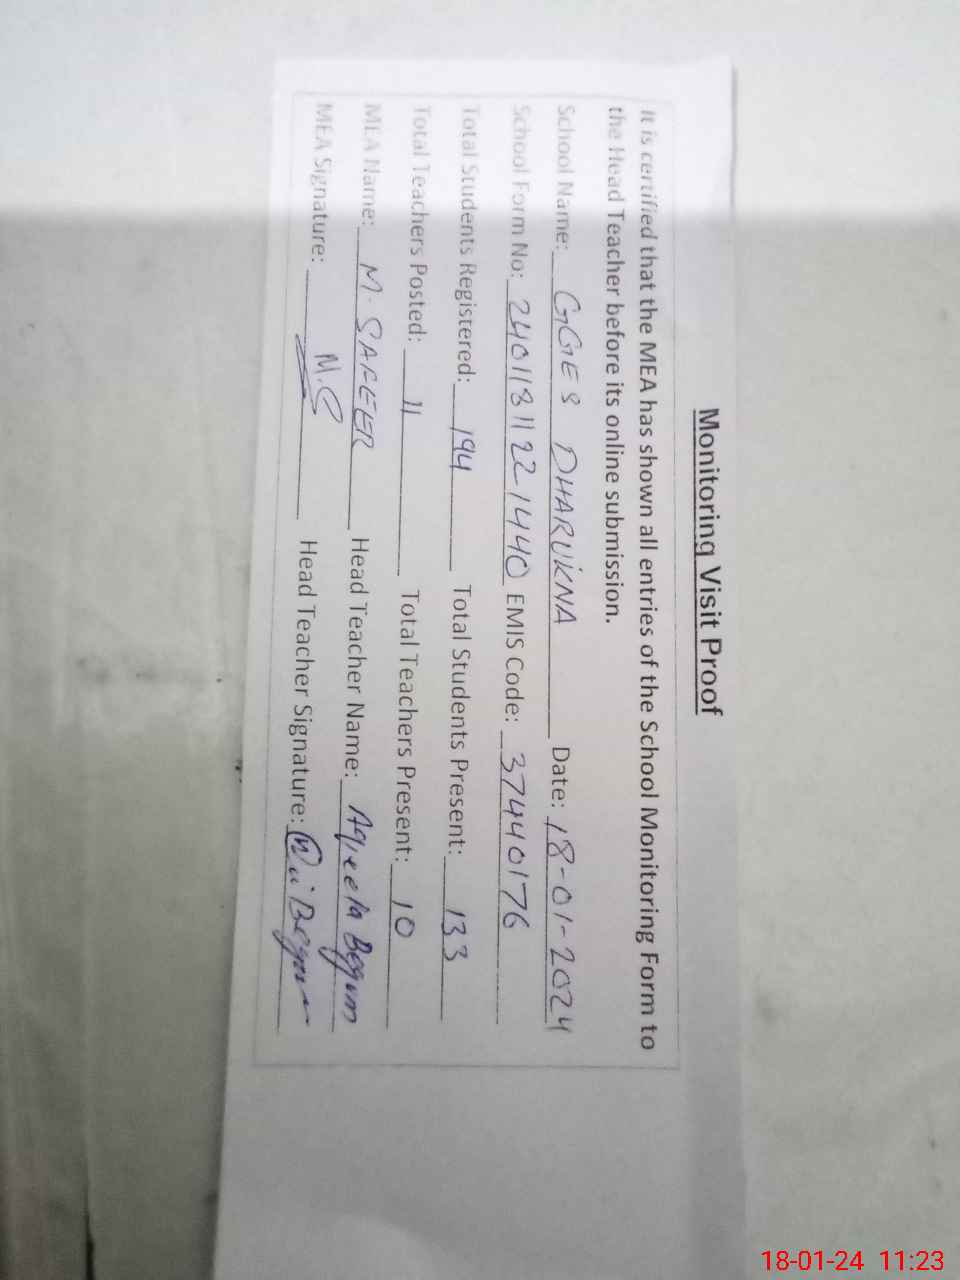 Monitoring Visit Proof
It is certified that the MEA has shown all entries of the School Monitoring Form to
the Head Teacher before its online submission.
School Name: GGES DHARUKNA Date: 18-01-2024
School Form No: 24011811221440 EMIS Code: 37440176
Total Students Registered: 194 Total Students Present: 133
Total Teachers Posted: 11 Total Teachers Present: 10
MEA Name: M. SAFEER Head Teacher Name: Aqeela Begum
MEA Signature: M.S Head Teacher Signature: Begum
18-01-24 11:23